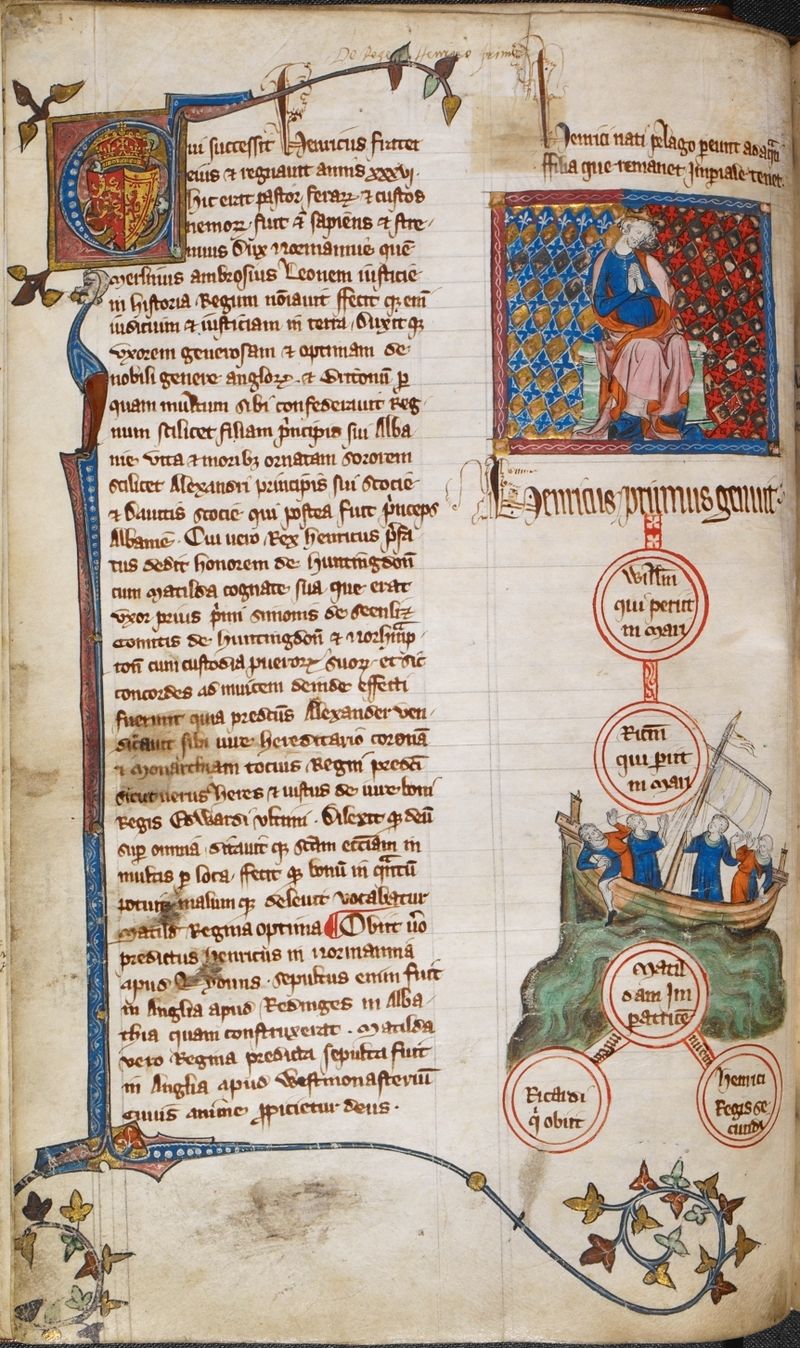 De Rege Henrico primo
Cui successit Henricus frater
eius & regnauit annis xxxvi.
hic erat pastor feraꝝ & custos
nemoꝝ fuit ꝫ sapiens & stre
nuus Dux Normannie quē
Merlinus ambrosius Leonem iusticie
in historia Regum noīauit ffecit qꝫ enī
iudicium & iusticiam in terra, Duxit qꝫ
vxorem generosam & optimam de
nobili genere angloꝝ & Britonū ꝑ
quam multum sibi confederauit Reg
num scilicet filiam pͥncipis sui Alba
nie vita & moribꝫ ornatam sororem
scilicet Alexandri principis sui Scocie
& Dauitis Scocie qui postea fuit pͥnceps
Albanie. Cui uero Rex henricus p̄fa
tus dedit honorem de huntingdon̄
cum Matilda cognate sua que erat
vxor prius pͥmi Simonis de Seenliz
Comitis de huntingdon̄ & Norhāp
ton̄ cum custodia pueroꝝ suoꝝ et sic
concordes ad inuicem deinde effecti
fuerunt quia predcūs Alexander ven
dicauit sibi iure hereditario coronā
& Monarchiam tocius Regni predcī
sicut uerus heres & iustus de iure boni
Regis Edwardi vltimi. Dilexit qꝫ deū
suꝑ omnia ditauit qꝫ scām ecc̄iam in
multis ꝑ loca, ffecit qꝫ bonū in qͣntū
potuit malum qꝫ deleuit vocabatur
Matild Regina optima Obiit ūo
predictus henricus in Normannia
apud Lyouns. Sepultus enim fuit
in Anglia apud Redinges in Alba
thia quam construxerat. Matilda
vero Regina predicta sepulta fuit
in Anglia apud Westmonasteriū
cuius anime ꝓpicietur deus.
Henrici nati pelago perunt ad aqͣ
ffilia que remanet Inperiale tenet
Henricus primus genuit
Willm̄
qui periit
in Mari
Ricm̄
qui piit
in Mari
Matil
dam Im
patrice
Ricardi
qͥ obiit
henrici
Regis se
cundi